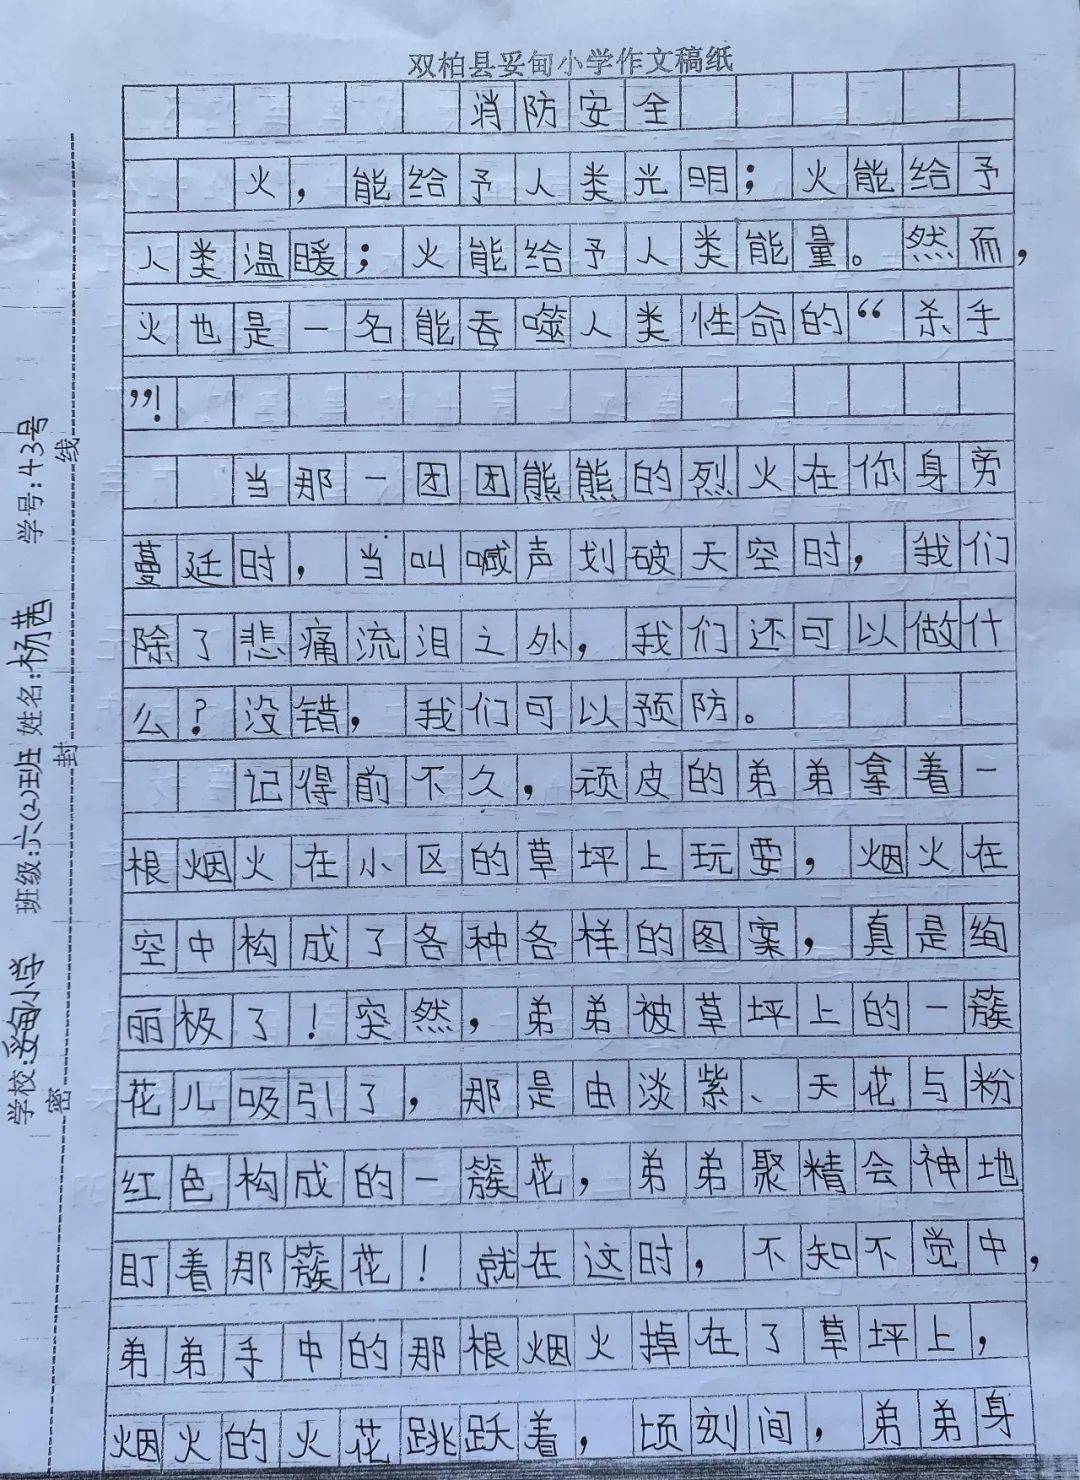 双柏县妥甸小学作文稿纸
消防安全
火，能给予人类光明；火能给予
人类温暖；火能给予人类能量。然而，
火也是一名能吞噬人类性命的“杀手
”！
当那一团团熊熊的烈火在你身旁
蔓廷时，当叫喊声划破天空时，我们
除了悲痛流泪之外，我们还可以做什
么？没错，我们可以预防。
记得前不久，顽皮的弟弟拿着一
根烟火在小区的草坪上玩耍，烟火在
空中构成了各种各样的图案，真是绚
丽极了！突然，弟弟被草坪上的一簇
花儿吸引了，那是由淡紫、天花与粉
红色构成的一簇花，弟弟聚精会神地
盯着那簇花！就在这时，不知不觉中，
弟弟手中的那根烟火掉在了草坪上，
烟火的火花跳跃着，顷刻间，弟弟身
学校：妥甸小学 班级：六(2)班 姓名：杨茜 学号：43号
密 封 线